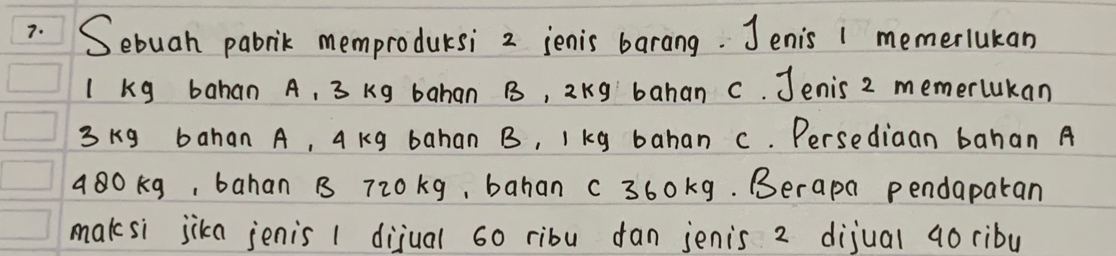 7. Sebuah pabrik memproduksi 2 jenis barang. Jenis 1 memerlukan
1 kg bahan A, 3 kg bahan B, 2kg bahan C. Jenis 2 memerlukan
3 kg bahan A, 4 kg bahan B, 1 kg bahan C. Persediaan bahan A
480 kg, bahan B 720kg, bahan C 360kg. Berapa pendapatan
maksi jika jenis 1 dijual 60 ribu dan jenis 2 dijual 40 ribu